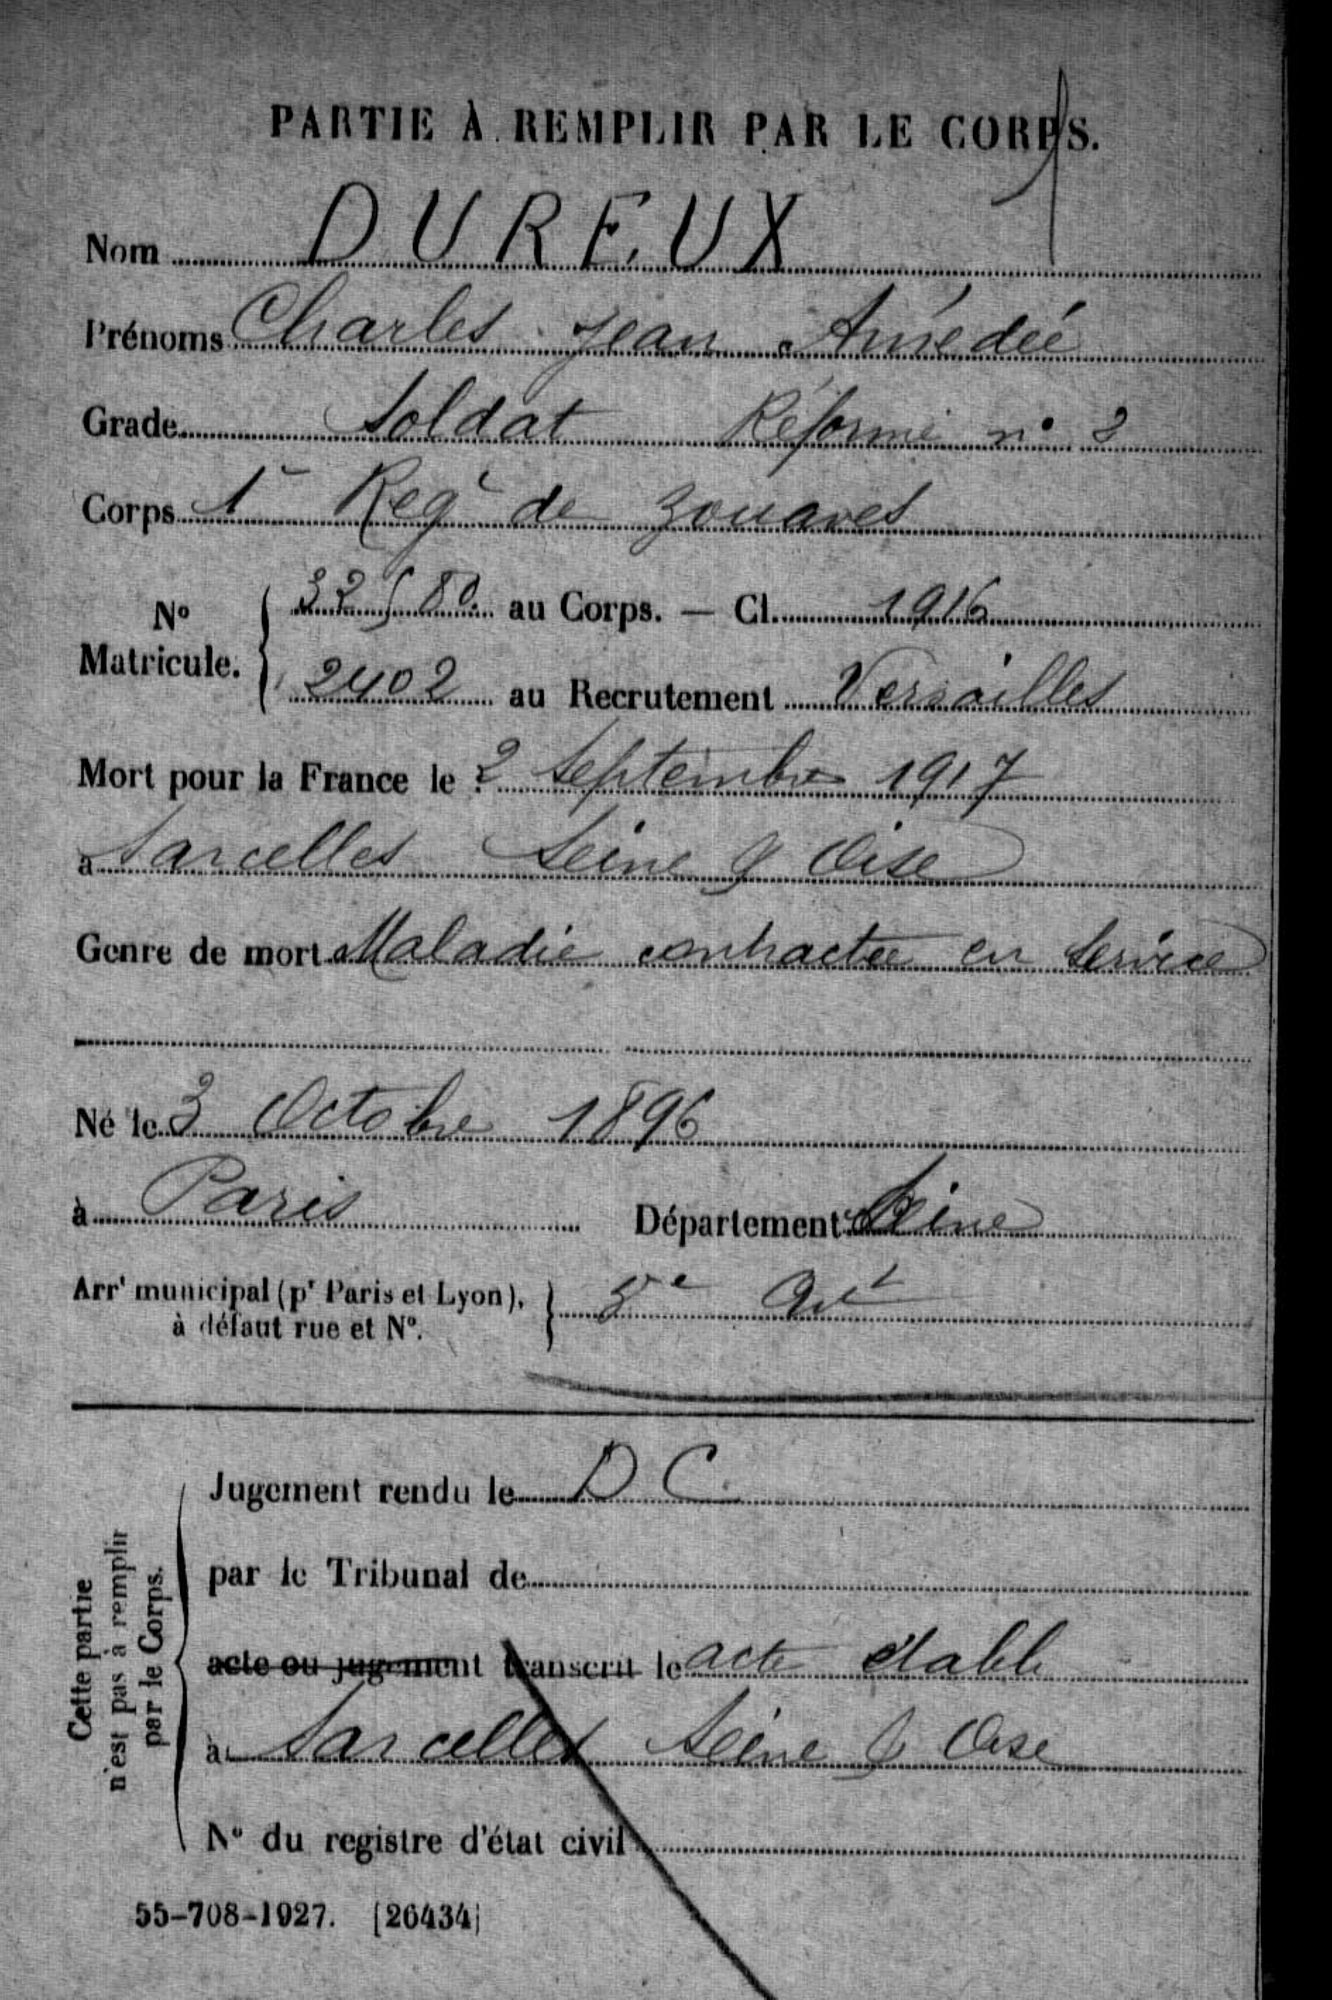 PARTIE À REMPLIR PAR LE CORPS.
Nom DUREUX
Prénoms Charles Jean Amédée
Grade Soldat Réformé n° 2
Corps 1er Regt de Zouaves
N° Matricule. { 32580. au Corps. — Cl. 1916
2402 au Recrutement Versailles
Mort pour la France le 2 Septembre 1917
à Sarcelles Seine & Oise
Genre de mort Maladie contractée en service
Né le 3 Octobre 1896
à Paris Département Seine
Arrt municipal (pr Paris et Lyon), à défaut rue et N°. } Art
Cette partie n'est pas à remplir par le Corps.
Jugement rendu le D C
par le Tribunal de
acte ou jugement transcrit le acte établi
à Sarcelles Seine & Oise
N° du registre d'état civil
55-708-1927. [26434]